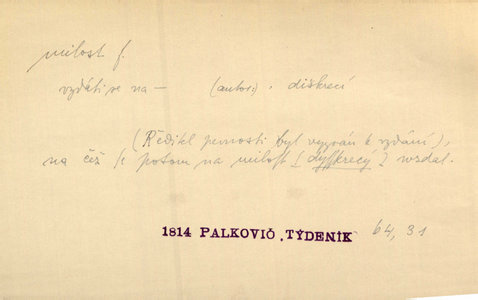 milost f.
vzdáti se na — (autor:) . diškrecí
(Ředitel pevnosti byl vyzván k vzdání),
na čež se potom na milost (dyskrecý) wzdal.
1814 PALKOVIČ, TÝDENÍK 64, 31